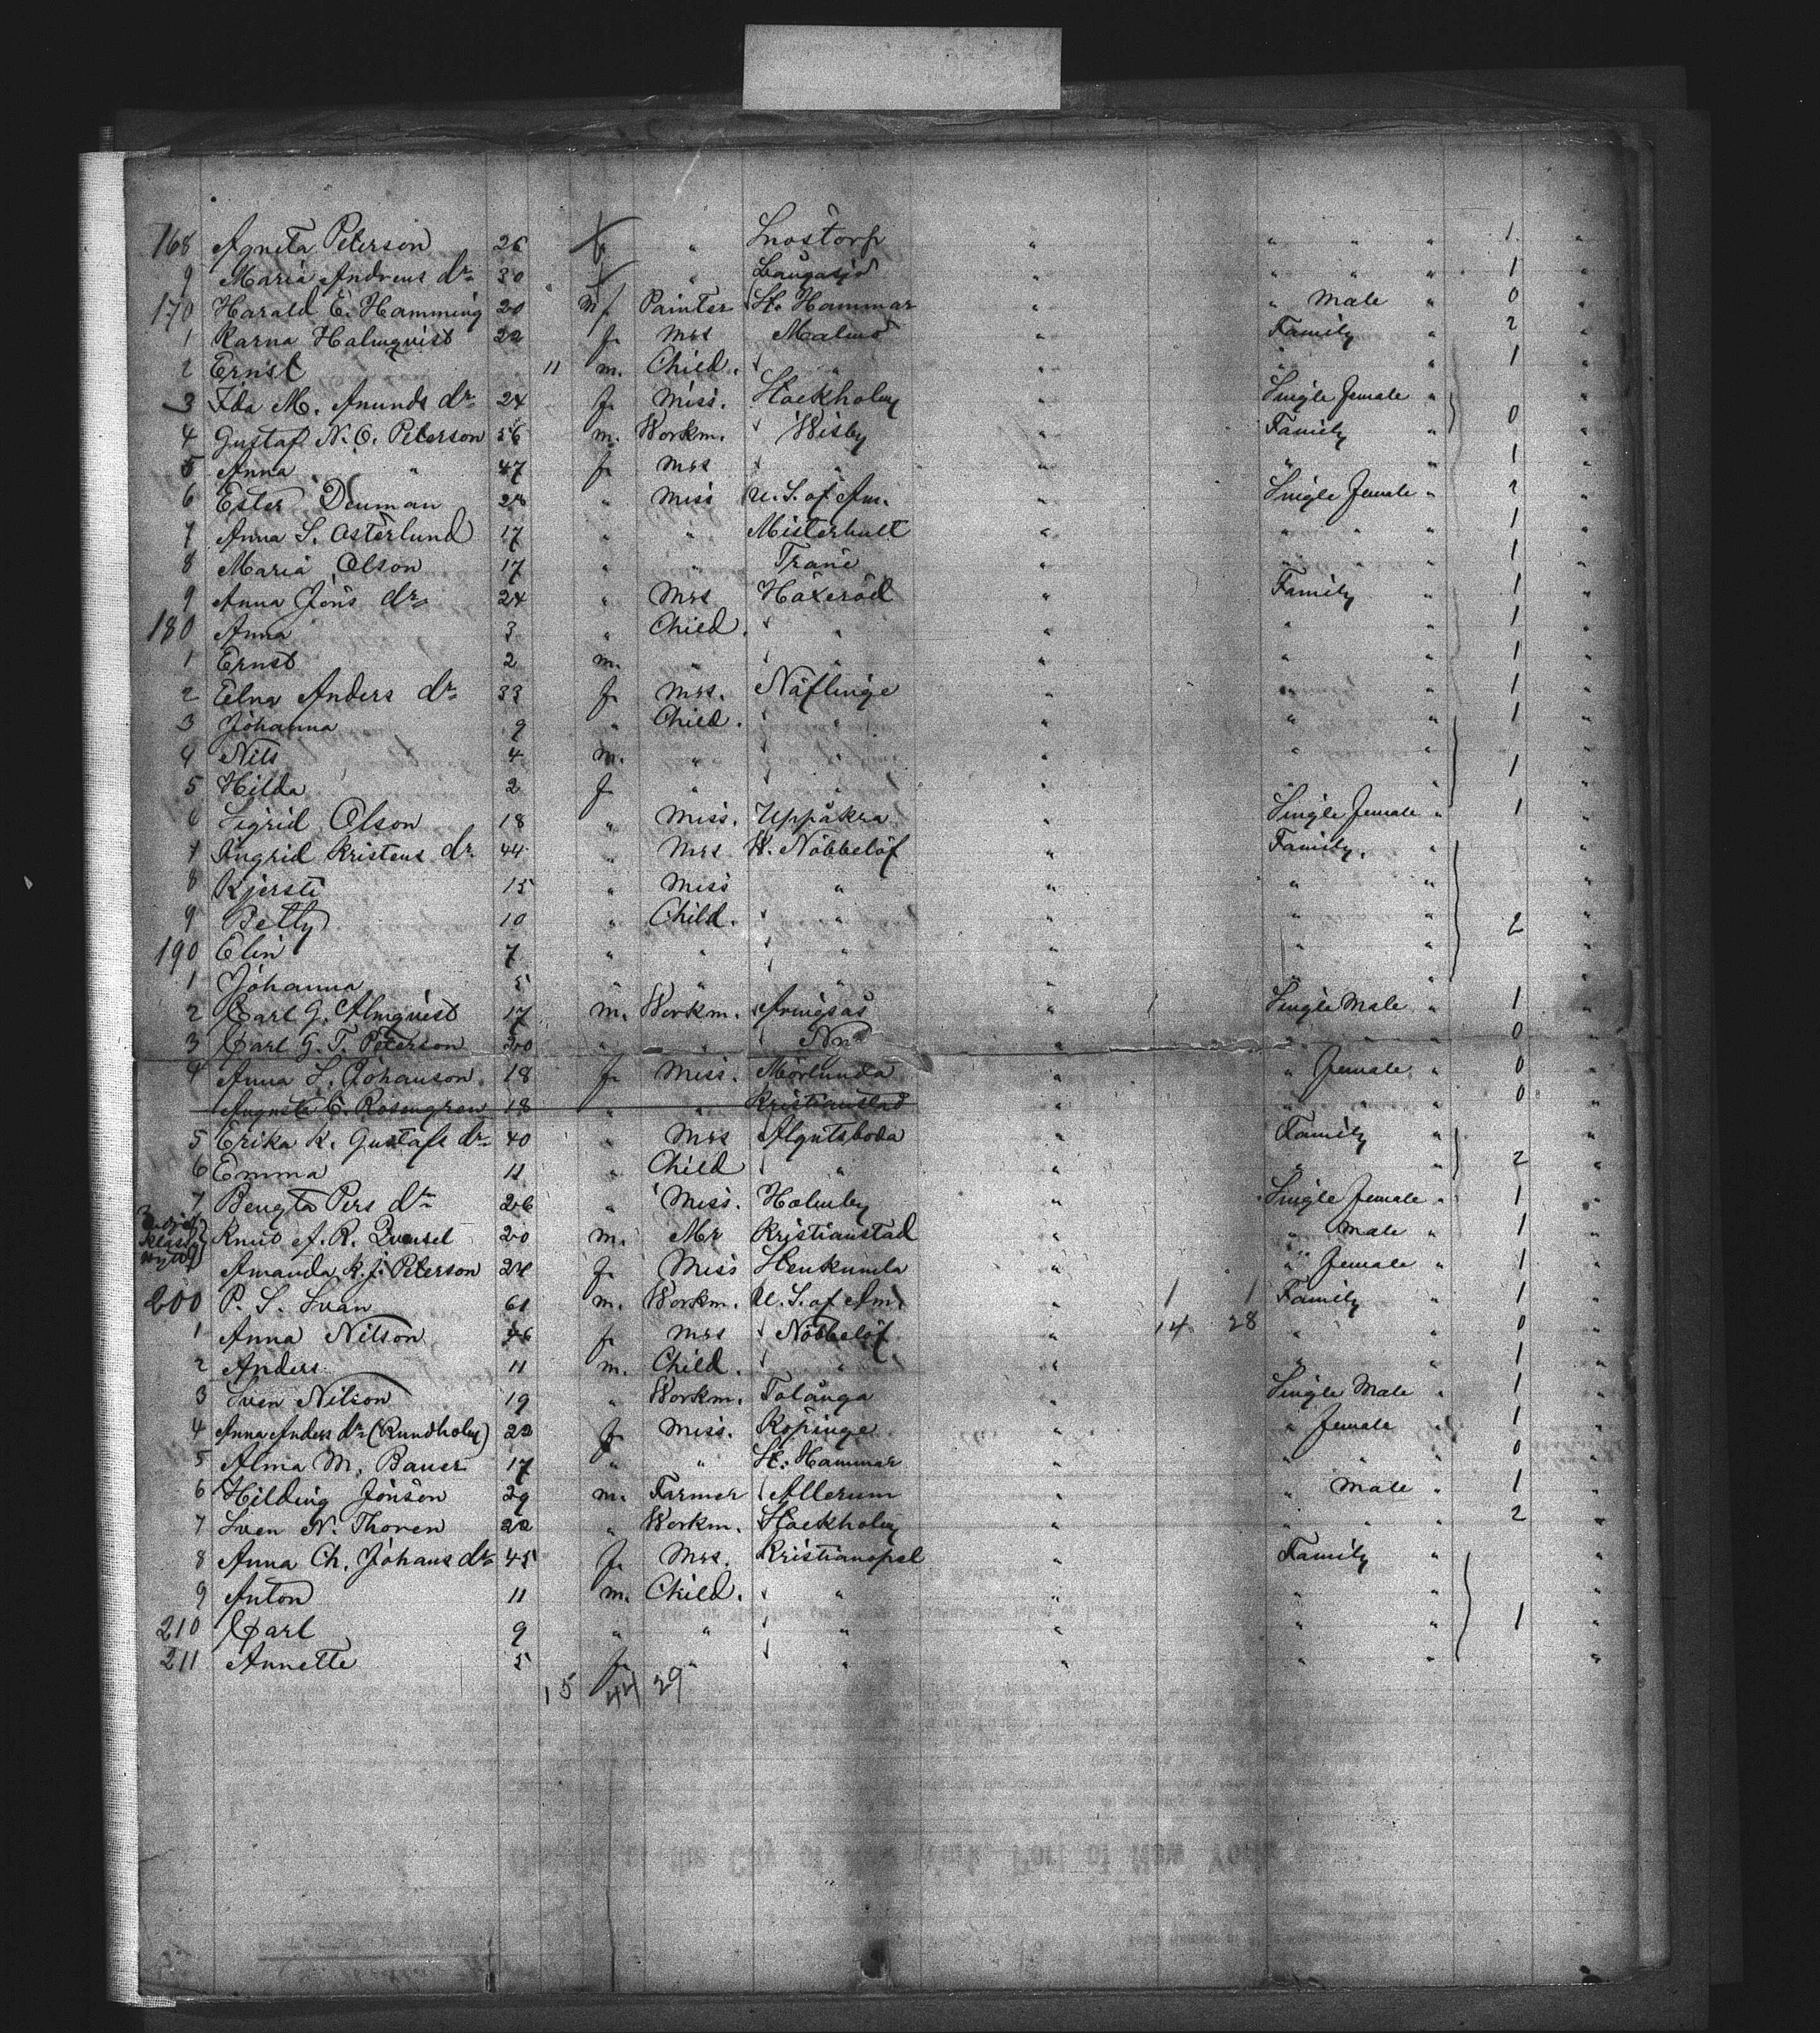 168 Agneta Peterson 26 f " Snostorp " " " " 1 "
9 Maria Andreus dr 30 f " Långasjö " " " " 1 "
170 Harald E. Hamming 20 m Painter St. Hammar " " Male " 0 "
1 Karna Halmqvist 22 f. Mrs Malmö " Family " 2 "
2 Ernst 11 m. Child. " " " " 1 "
3 Ida M. Anunds dr 24 f. Miss. Stockholm " Single female "
4 Gustaf N. O. Peterson 56 m. Workm. Wisby " Family " 0 "
5 Anna " 47 f. Mrs " " " " 1 "
6 Ester Denman 28 " Miss U. S. of Am. " Single female " 2 "
7 Anna S. Osterlund 17 " " Misterhult " " " " 1 "
8 Maria Olson 17 " " Trane " " " " 1 "
9 Anna Jöns dr 24 " Mrs Häxeröd " Family " 1 "
180 Anna 3 " Child. " " " " 1 "
1 Ernst 2 m. " " " " " 1 "
2 Elna Anders dr 33 f. Mrs. Näflinge " " " 1 "
3 Johanna 9 " Child. " " " " 1 "
4 Nils 4 m. " " " " "
5 Hilda 2 f. " " " " " 1 "
6 Sigrid Olson 18 " Miss. Uppåkra " Single female " 1 "
7 Ingrid Kristens dr. 44 " Mrs W. Nöbbelöf " Family. " "
8 Kjersti 15 " Miss " " " " "
9 Betty 10 " Child. " " " " 2 "
190 Elin 7 " " " " " " "
1 Johanna 5 " " " " " " "
2 Carl G. Almqvist 17 m. Workm. Aringsås " 1 Single Male " 1 "
3 Carl G. T. Peterson 20 " " " " " " 0 "
4 Anna L. Johanson. 18 f. Miss. Mörlunda " " female. " 0 "
Augusta C. Rosengren 18 " " Kristianstad " " " " 0 "
5 Erika K. Gustafs dr 40 " Mrs Algutsboda " Family " "
6 Emma 11 " Child " " " " 2 "
7 Bengta Pers dr 26 " Miss. Holmby " Single female " 1 "
Knut A. R. Quensel 20 m. Mr Kristianstad " " Male " 1 "
Amanda K. J. Peterson 24 f. Miss Stenkumla " " female " 1 "
200 P. S. Svan 61 m. Workm. U. S. of Am. " 1 1 Family " 1 "
1 Anna Nilson 46 f. Mrs Nöbbelöf " 14 28 " " 0 "
2 Anders 11 m. Child. " " " " 1 "
3 Sven Nilson 19 " Workm. Tolånga " Single Male " 1 "
4 Anna Anders dr (Rundholm) 22 f. Miss. Köpinge " " female 1 "
5 Alma M. Bauer 17 " " St. Hammar " " " " 0 "
6 Hilding Jönson 29 m. Farmer Allerum " " Male " 1 "
7 Sven N. Thoren 22 " Workm. Stockholm " " " " 2 "
8 Anna Ch. Johans dr 45 f. Mrs. Kristianopel " Family " "
9 Anton 11 m. Child. " " " " "
210 Carl 9 " " " " " " 1 "
211 Annette 5 f. " " " " " "
15 44 29